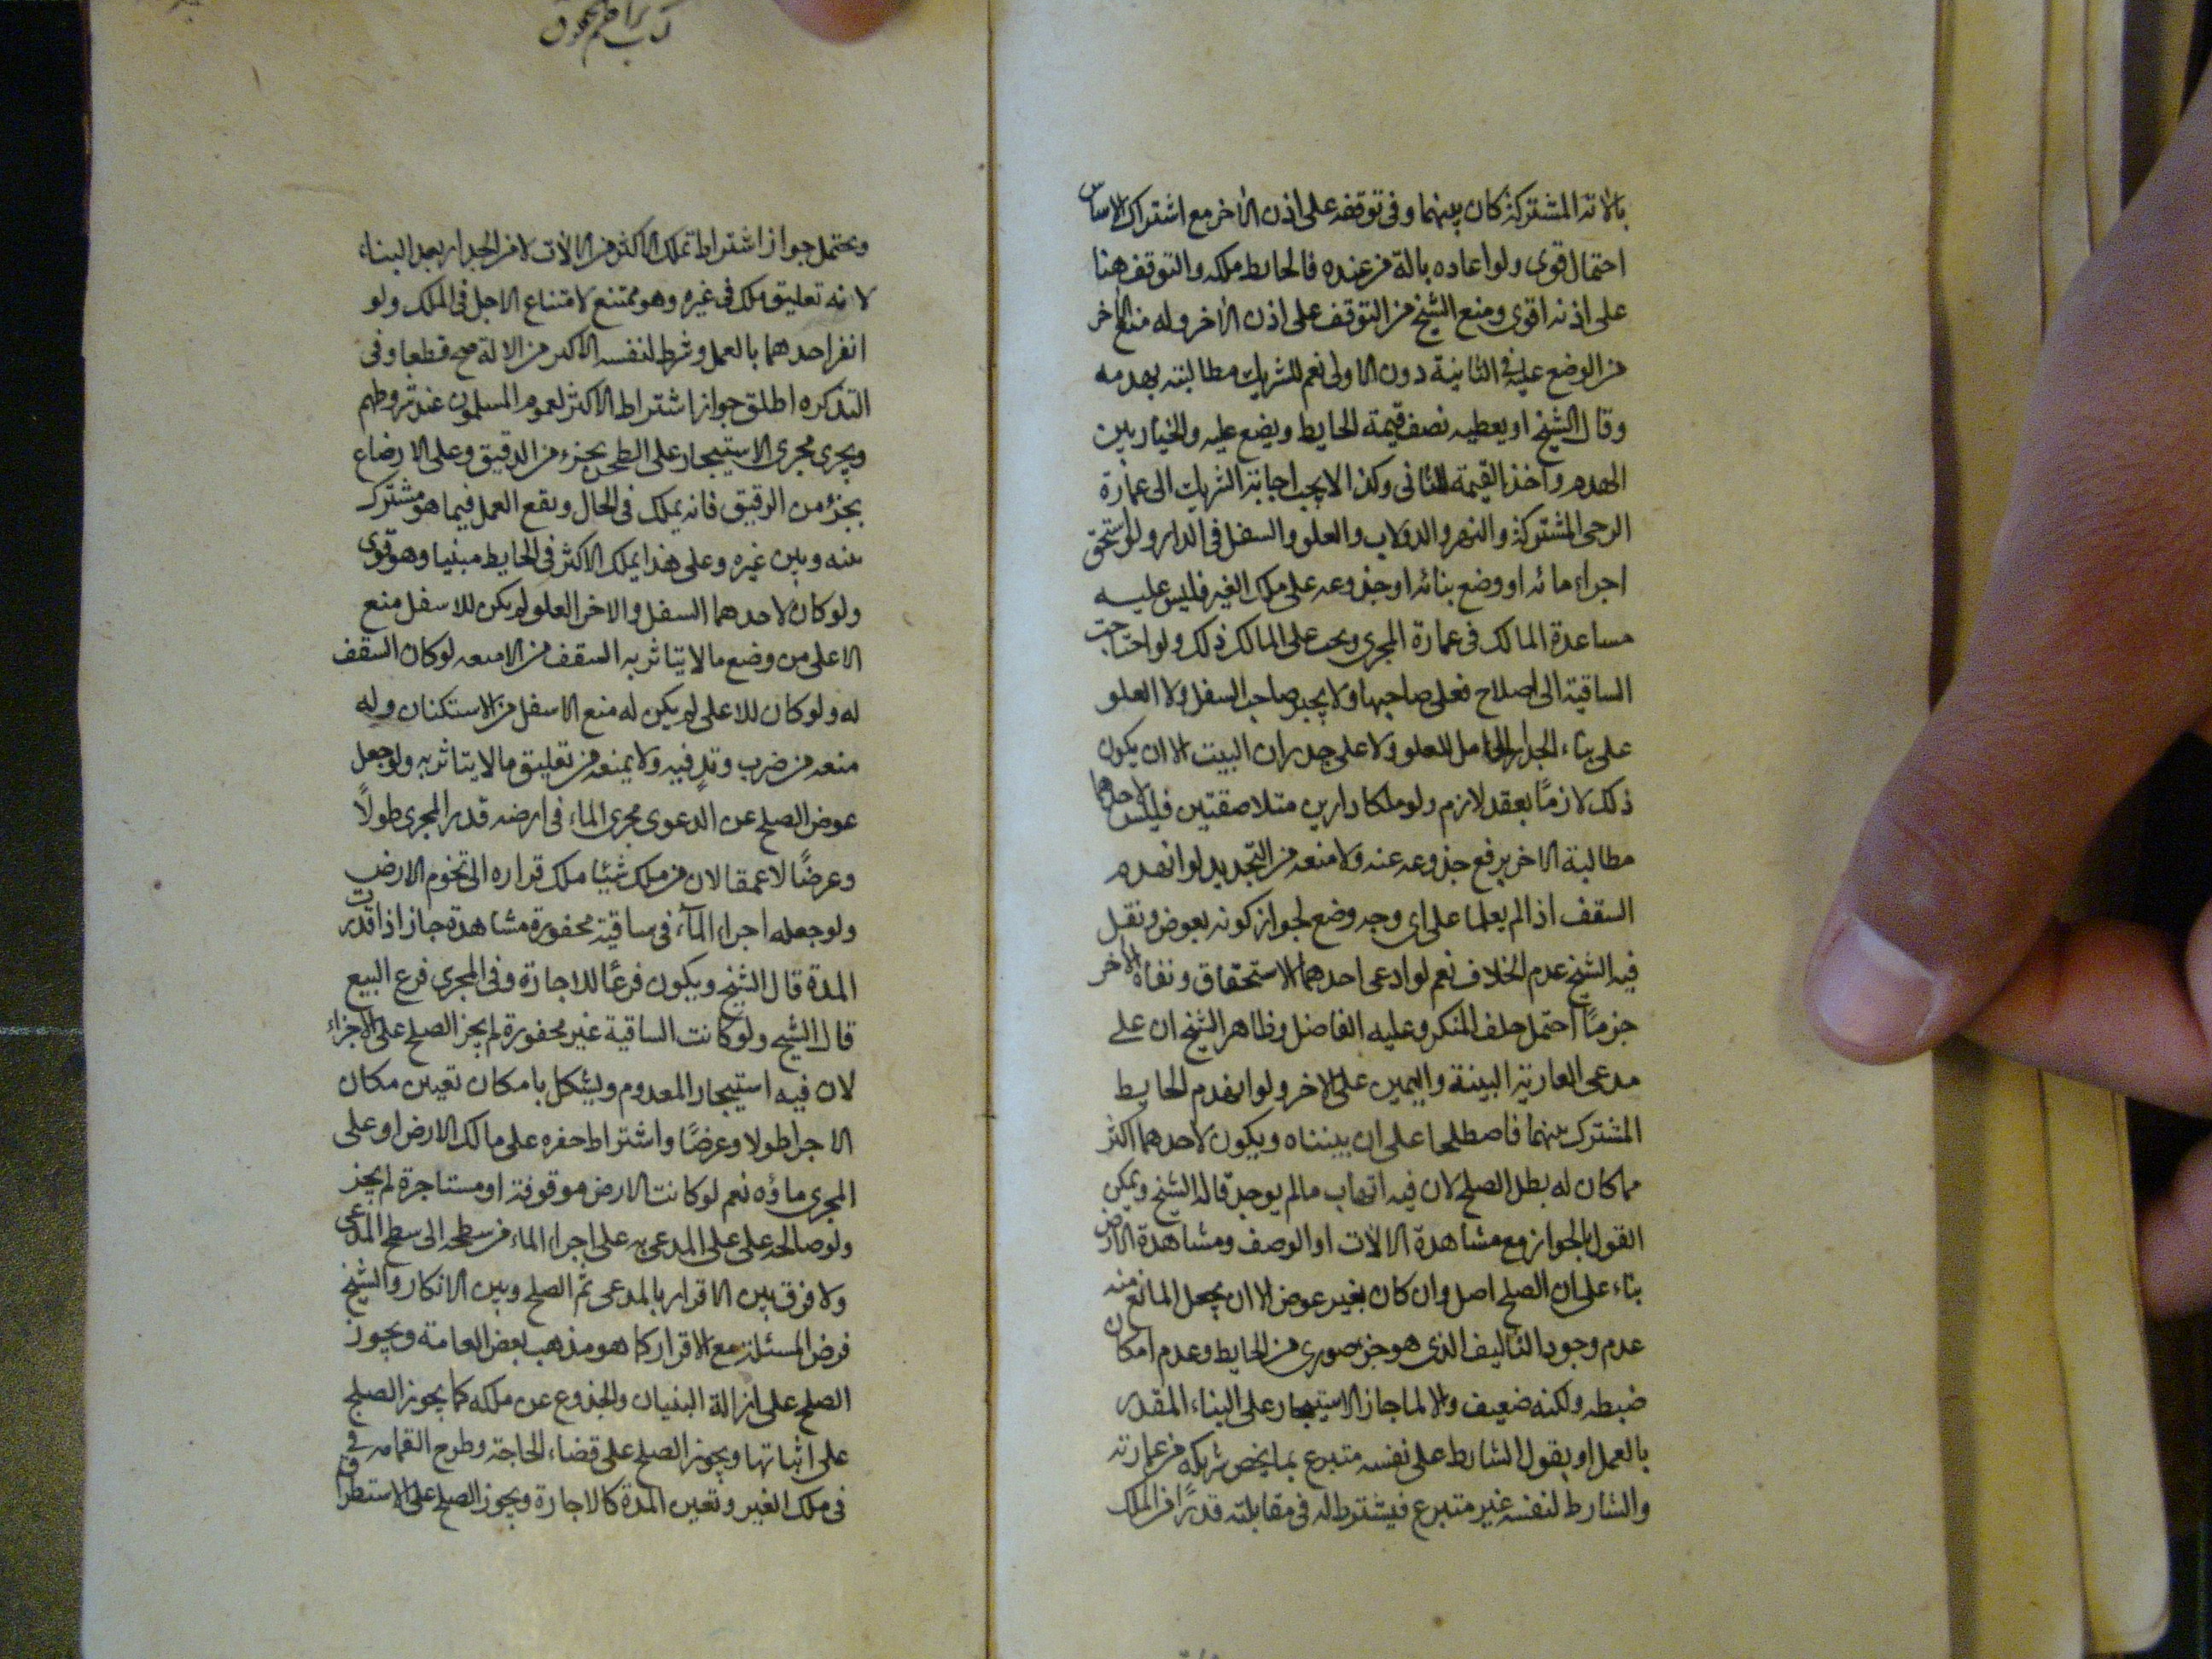 بالاته المشتركة كان بينهما وفي توقفه على اذن الاخر مع اشتراك الاساس
احتمال قوى ولو اعاده بالة من عنده فالحايط ملكه والتوقف هنا
على اذنه اقوى ومنع الشيخ من التوقف على اذن الاخر وله منع الاخر
من الوضع عليه في الثانية دون الاولى نعم للشريك مطالبته بهدمه
وقال الشيخ او يعطيه نصف قيمة الحايط ويضع عليه والخيار بين
الهدم واخذ القيمة للثانى وكذا لا يجب اجابة الشريك الى عمارة
الرحى المشتركة والنهر والدولاب والعلو والسفل في الدار ولو استحق
اجراء مائه او وضع بنائه او جذوعه على ملك الغير فليس عليه
مساعدة المالك في عمارة المجرى ويجب على المالك ذلك ولو احتاجت
الساقية الى اصلاح فعلى صاحبها ولا يجبر صاحب السفل ولا العلو
على بناء الجدار الحامل للعلو ولا على جدران البيت الا ان يكون
ذلك لازمًا بعقد لازم ولو ملكا دارين متلاصقتين فليس لاحدهما
مطالبة الاخر برفع جذوعه عنه ولا منعه من التجديد لو انهدم
السقف اذا لم يعلما على اى وجه وضع لجواز كونه بعوض ونقل
فيه الشيخ عدم الخلاف نعم لو ادعى احدهما الاستحقاق ونفاه الاخر
جزمًا احتمل حلف المنكر وعليه الفاضل وظاهر الشيخ ان على
مدعى العارية البينة واليمين على الاخر ولو انهدم الحايط
المشترك بينهما فاصطلحا على ان يبنياه ويكون لاحدهما اكثر
مما كان له بطل الصلح لان فيه اتهاب ما لم يوجد قاله الشيخ ويمكن
القول بالجواز مع مشاهدة الالات او الوصف ومشاهدة الارض
بناء على ان الصلح اصل وان كان بغير عوض الا ان يجعل المانع منه
عدم وجود التاليف الذى هو جزء صورى من الحايط وعدم امكان
ضبطه ولكنه ضعيف والا لما جاز الاستيجار على البناء المقدر
بالعمل او يقول الشارط على نفسه متبرع بما يخص شريكه من عمارته
والشارط لنفسه غير متبرع فيشترط له في مقابلته قدرًا من الملك
ويحتمل جواز اشتراط تملك الاكثر من الالات لا من الجدار بعد البناء
لانه تعليق ملك في غيره وهو ممتنع لامتناع الاجل في الملك ولو
انفر احدهما بالعمل وشرط لنفسه الاكثر من الالة صح قطعا وفى
التذكره اطلق جواز اشتراط الاكثر لعموم المسلمون عند شروطهم
ويجرى مجرى الاستيجار على الطحن بجزء من الدقيق وعلى الارضاع
بجزء من الرقيق فانه يملك في الحال ويقع العمل فيما هو مشترك
بينه وبين غيره وعلى هذا يملك الاكثر في الحايط مبنيا وهو قوى
ولو كان لاحدهما السفل والاخر العلو لم يكن للاسفل منع
الاعلى من وضع ما لا يتاثر به السقف من الامتعه لو كان السقف
له ولو كان للاعلى لم يكن له منع الاسفل من الاستكنان وله
منعه من ضرب وتدٍ فيه ولا يمنعه من تعليق ما لا يتاثر به ولو جعل
عوض الصلح عن الدعوى مجرى الماء في ارضه قدر المجرى طولًا
وعرضًا لا عمقا لان من ملك شيئا ملك قراره الى تخوم الارض
ولو جعله اجراء المآء في ساقية محفورة مشاهدة جاز اذا قدرت
المدة قال الشيخ ويكون فرعًا للاجارة وفى المجرى فرع البيع
قال الشيخ ولو كانت الساقية غير محفورة لم يجز الصلح على الاجراء
لان فيه استيجار المعدوم ويشكل بامكان تعيين مكان
الاجرا طولا وعرضًا واشتراط حفره على مالك الارض او على
المجرى ماؤه نعم لو كانت الارض موقوفة او مستاجرة لم يجز
ولو صالحه على على المدعى به على اجراء الماء من سطحه الى سطح المدعى
ولا فرق بين الاقرار بالمدعى ثم الصلح وبين الانكار والشيخ
فرض المسئلة مع الاقرار كما هو مذهب بعض العامة ويجوز
الصلح على ازالة البنيان والجذوع عن ملكه كما يجوز الصلح
على اثباتها ويجوز الصلح على قضاء الحاجة وطرح القمامه في
في ملك الغير وتعين المدة كالاجارة ويجوز الصلح على الاستطراق